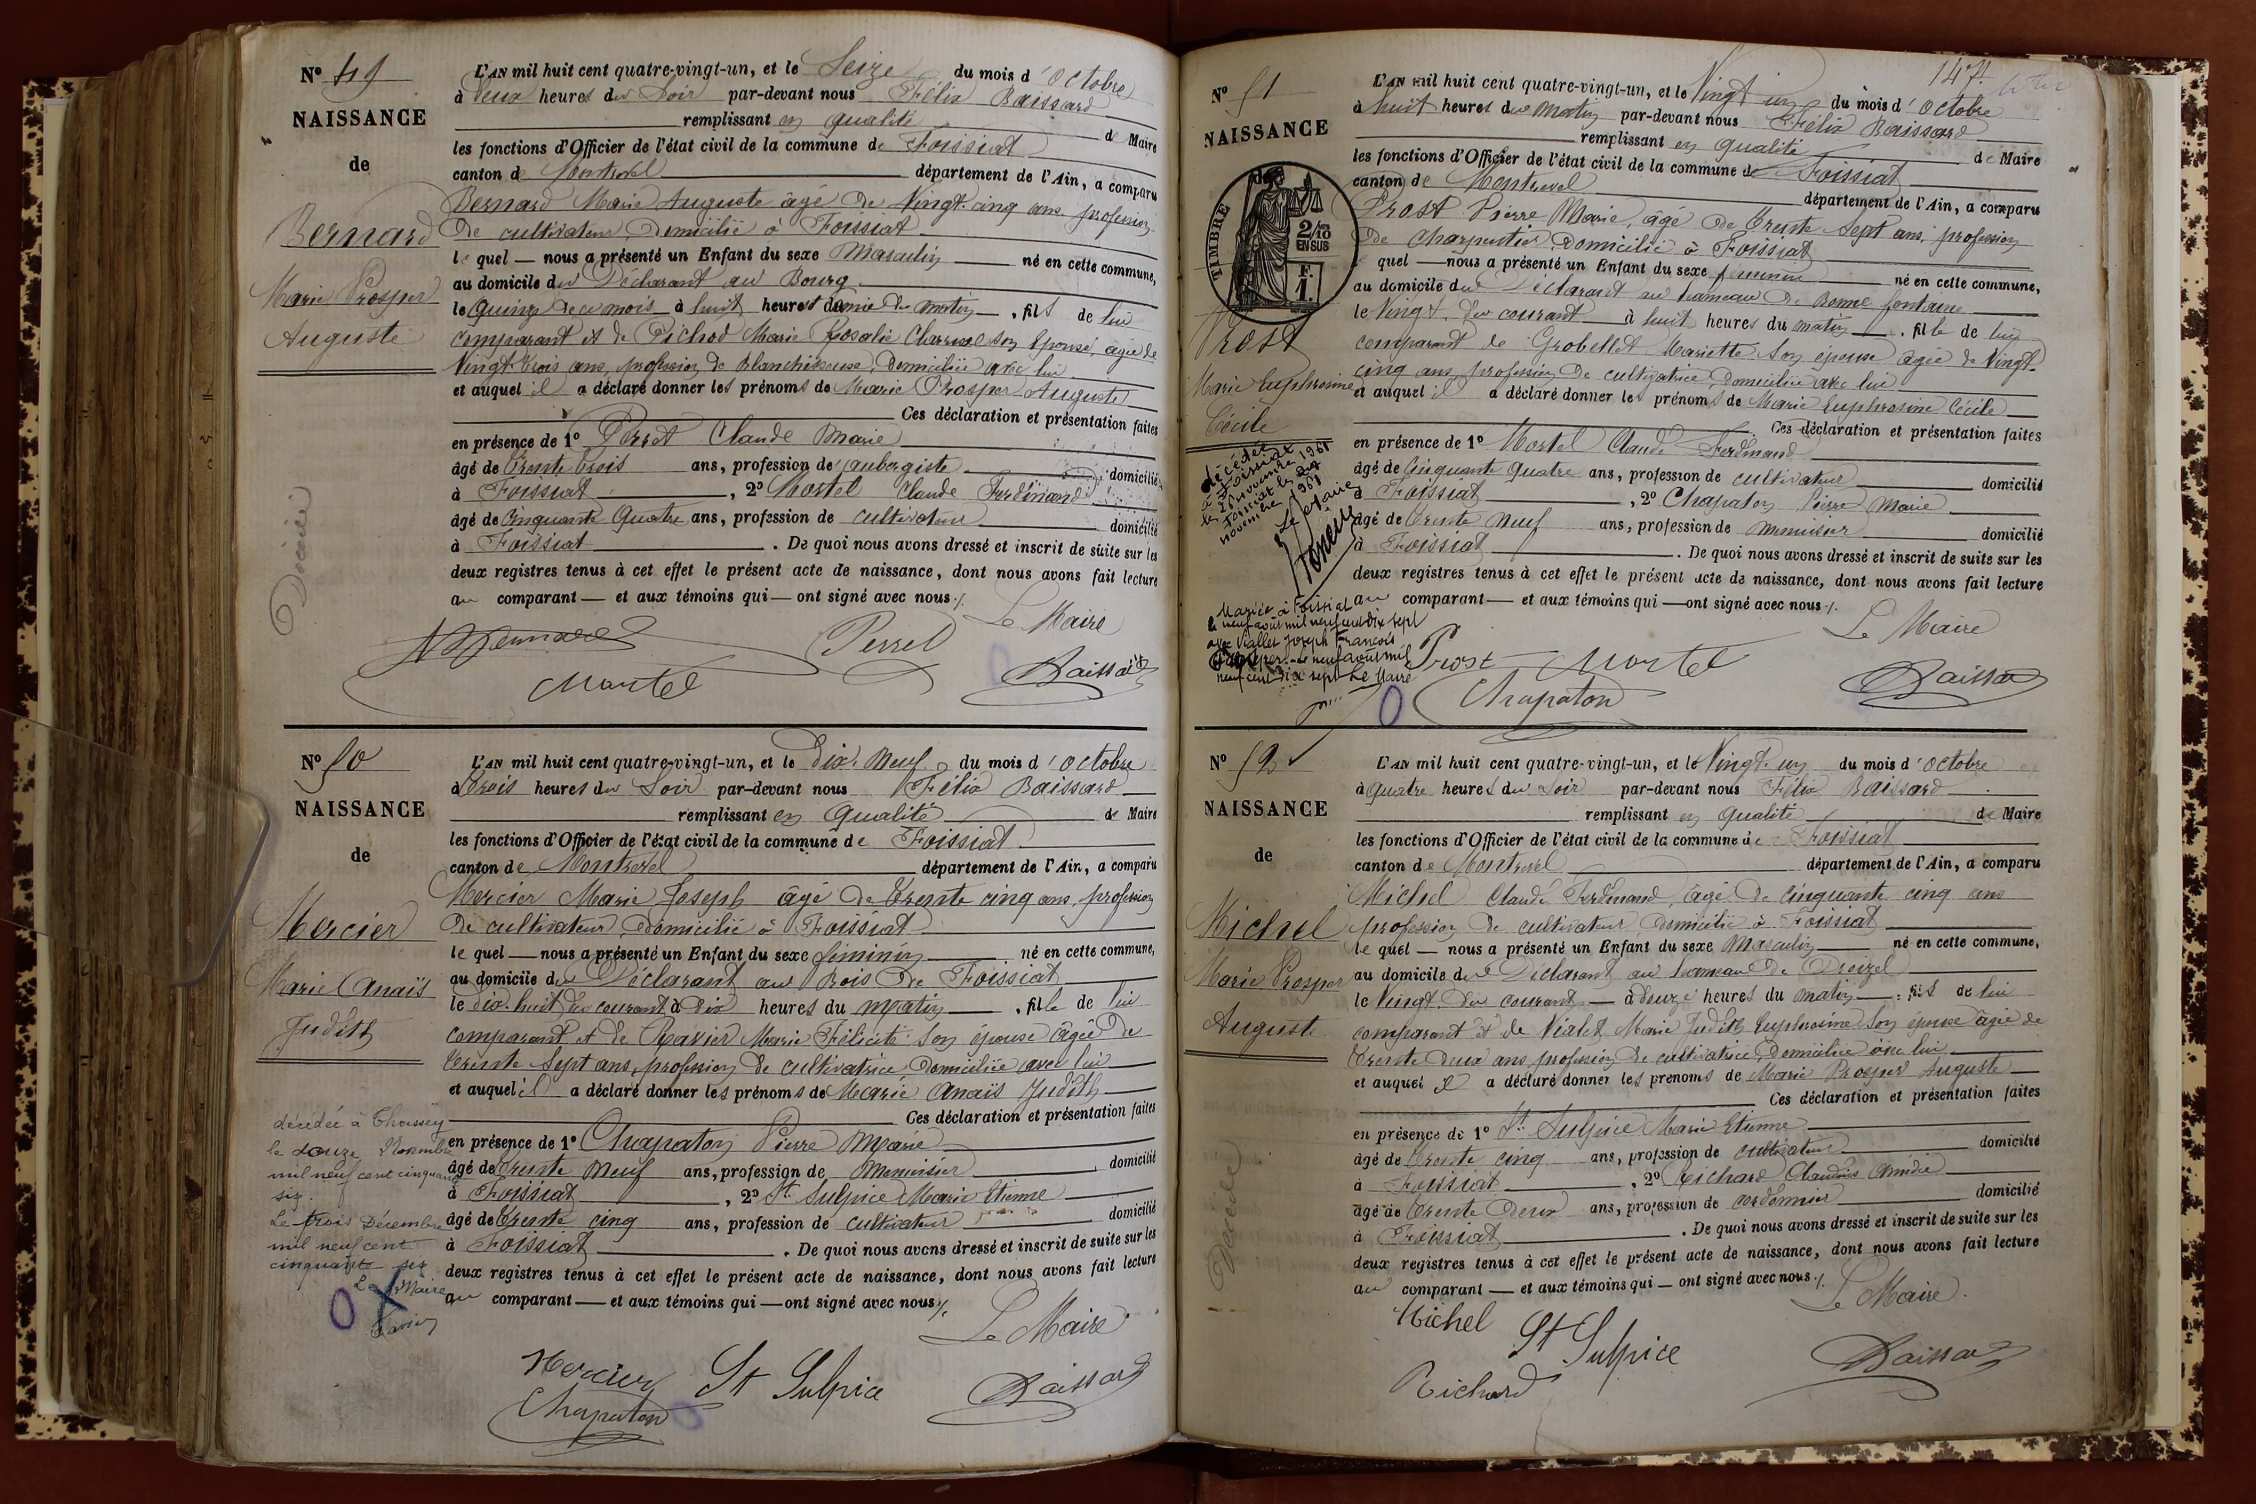 N° 49
NAISSANCE
de
Bernard
Marie Prosper
Auguste
Décédé
L'AN mil huit cent quatre-vingt-un, et le Seize du mois d'Octobre
à Deux heures du Soir par-devant nous Félix Baissard
remplissant en qualité de Maire
les fonctions d'Officier de l'état civil de la commune de Foissiat
canton de Montrevel département de l'Ain, a comparu
Bernard Marie Auguste âgé de Vingt-cinq ans profession
de cultivateur, domicilié à Foissiat
le quel — nous a présenté un Enfant du sexe Masculin né en cette commune,
au domicile du Déclarant au Bourg
le quinze de ce mois à huit heures demie du matin, fils de lui
comparant et de Pichod Marie Rosalie son épouse, âgée de
Vingt-trois ans, profession de Blanchisseuse, domiciliée avec lui
et auquel il a déclaré donner les prénoms de Marie Prosper Auguste
Ces déclaration et présentation faites
en présence de 1° Perret Claude Marie
âgé de trente trois ans, profession de aubergiste domicilié
à Foissiat, 2° Mortel Claude Ferdinand
âgé de Cinquante Quatre ans, profession de cultivateur domicilié
à Foissiat. De quoi nous avons dressé et inscrit de suite sur les
deux registres tenus à cet effet le présent acte de naissance, dont nous avons fait lecture
au comparant — et aux témoins qui — ont signé avec nous ./.
Le Maire
Bernard Perret
Mortel Baissard
N° 50
NAISSANCE
de
Mercier
Marie Anaïs
Judith
décédée à Thoissey
le douze Novembre
mil neuf cent cinquante
six.
Le trois Décembre
mil neuf cent
cinquante six
Le Maire
L'AN mil huit cent quatre-vingt-un, et le Dix-Neuf du mois d'Octobre
à Trois heures du Soir par-devant nous Félix Baissard
remplissant en Qualité de Maire
les fonctions d'Officier de l'état civil de la commune de Foissiat
canton de Montrevel département de l'Ain, a comparu
Mercier Marie Joseph âgé de Trente cinq ans, profession
de cultivateur, domicilié à Foissiat
le quel — nous a présenté un Enfant du sexe féminin né en cette commune,
au domicile du Déclarant au Bois de Foissiat
le dix-huit du courant à Dix heures du matin, fille de lui
comparant et de Ravier Marie Félicité son épouse âgée de
trente Sept ans, profession de cultivatrice domiciliée avec lui
et auquel il a déclaré donner les prénoms de Marie Anaïs Judith
Ces déclaration et présentation faites
en présence de 1° Chapaton Pierre Marie
âgé de trente Neuf ans, profession de Menuisier domicilié
à Foissiat, 2° St Sulpice Marie Etienne
âgé de Trente cinq ans, profession de cultivateur domicilié
à Foissiat. De quoi nous avons dressé et inscrit de suite sur les
deux registres tenus à cet effet le présent acte de naissance, dont nous avons fait lecture
au comparant — et aux témoins qui — ont signé avec nous ./.
Le Maire
Mercier St Sulpice Baissard
Chapaton
147
N° 51
NAISSANCE
de
TIMBRE
2/10
EN SUS
F.
1.
Prost
Marie Euphrosine
Cécile
décédée
à Foissiat
le 26 novembre 1961
Foissiat les 29
novembre 1961
Le Maire
Mariée à Foissiat
le neuf août mil neuf cent dix sept
avec Viallet Joseph François
le neuf août mil
neuf cent dix sept Le Maire
L'AN mil huit cent quatre-vingt-un, et le Vingt un du mois d'Octobre
à huit heures du matin par-devant nous Félix Baissard
remplissant en qualité de Maire
les fonctions d'Officier de l'état civil de la commune de Foissiat
canton de Montrevel département de l'Ain, a comparu
Prost Pierre Marie, âgé de Trente Sept ans, profession
de charpentier, domicilié à Foissiat
quel — nous a présenté un Enfant du sexe féminin né en cette commune,
au domicile du Déclarant au hameau de Bonne fontaine
le Vingt du courant à huit heures du matin, fille de lui
comparant de Grobellet Mariette son épouse âgée de Vingt-
cinq ans, profession de cultivatrice, domiciliée avec lui
et auquel il a déclaré donner les prénoms de Marie Euphrosine Cécile
Ces déclaration et présentation faites
en présence de 1° Mortel Claude Ferdinand
âgé de Cinquante Quatre ans, profession de cultivateur domicilié
à Foissiat, 2° Chapaton Pierre Marie
âgé de trente Neuf ans, profession de menuisier domicilié
à Foissiat. De quoi nous avons dressé et inscrit de suite sur les
deux registres tenus à cet effet le présent acte de naissance, dont nous avons fait lecture
au comparant — et aux témoins qui — ont signé avec nous ./.
Le Maire
Prost Mortel
Chapaton Baissard
N° 52
NAISSANCE
de
Michel
Marie Prosper
Auguste
Décédé
L'AN mil huit cent quatre-vingt-un, et le Vingt-un du mois d'Octobre
à Quatre heures du soir par-devant nous Félix Baissard
remplissant en qualité de Maire
les fonctions d'Officier de l'état civil de la commune de Foissiat
canton de Montrevel département de l'Ain, a comparu
Michel Claude Ferdinand, âgé de cinquante cinq ans
profession de cultivateur domicilié à Foissiat
le quel — nous a présenté un Enfant du sexe Masculin né en cette commune,
au domicile du Déclarant au hameau de
le Vingt du courant — à Douze heures du matin, fils de lui
comparant et de Vialet Marie Judith Euphrosine son épouse âgée de
Trente deux ans, profession de cultivatrice, domiciliée avec lui
et auquel il a déclaré donner les prénoms de Marie Prosper Auguste
Ces déclaration et présentation faites
en présence de 1° St Sulpice Marie Etienne
âgé de Trente cinq ans, profession de cultivateur domicilié
à Foissiat, 2° Richard Claudius Amédée
âgé de Trente Deux ans, profession de cordonnier domicilié
à Foissiat. De quoi nous avons dressé et inscrit de suite sur les
deux registres tenus à cet effet le présent acte de naissance, dont nous avons fait lecture
au comparant — et aux témoins qui — ont signé avec nous ./.
Le Maire
Michel St Sulpice
Richard Baissard